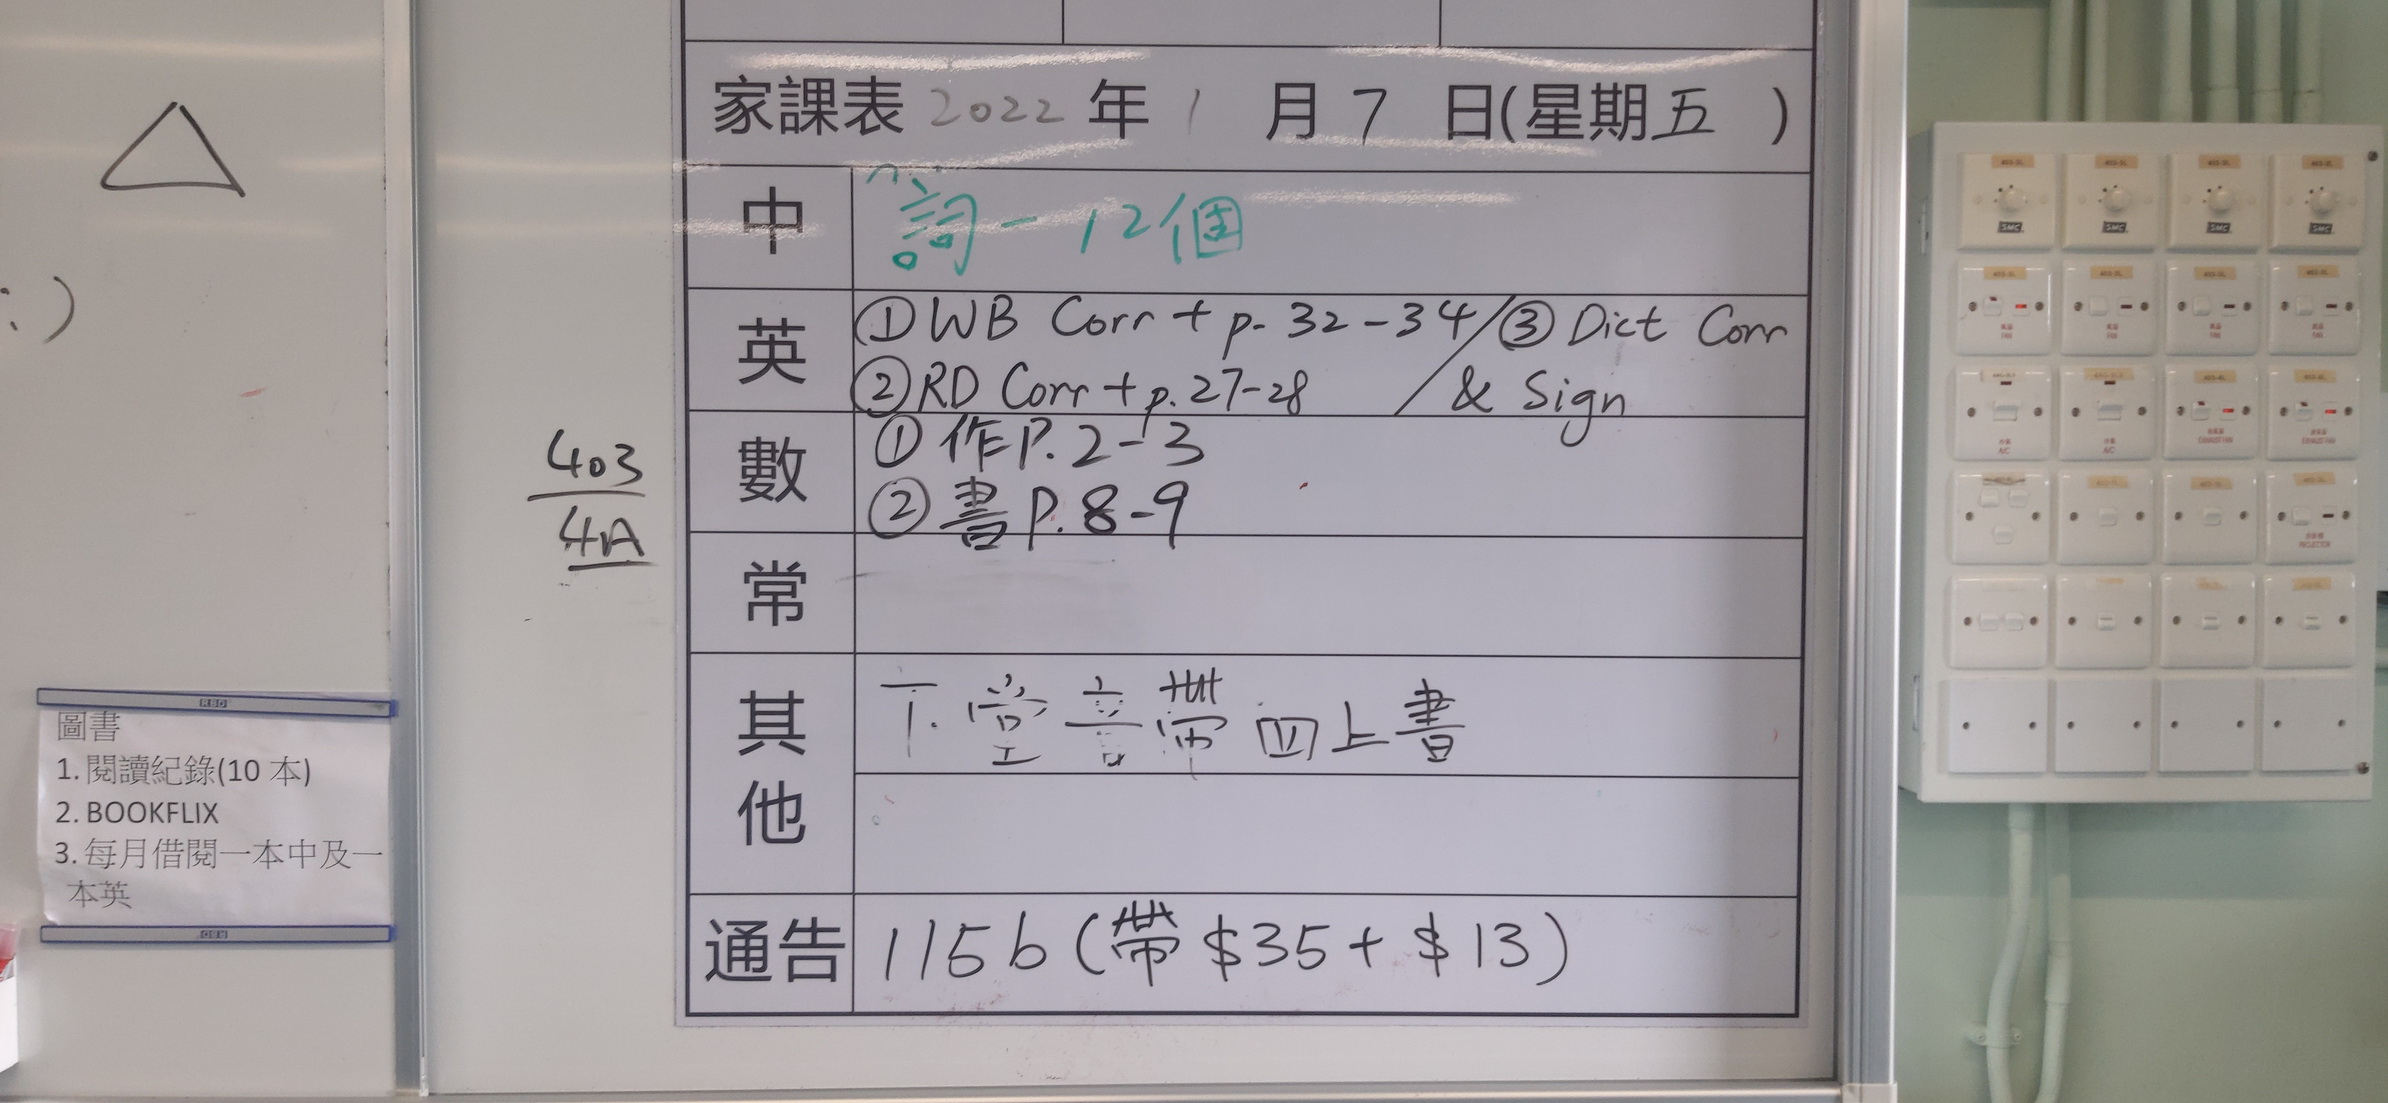 :)
403
4A
家課表 2022 年 1 月 7 日(星期五 )
中 詞-12個
英 ①WB Corr + p. 32-34 / ③ Dict Corr
②RD Corr + p.27-28 / & Sign
數 ① 作P.2-3
② 書P.8-9
常
其他 下堂音帶四上書
通告 115b (帶 $35 + $13)
圖書
1. 閱讀紀錄(10 本)
2. BOOKFLIX
3. 每月借閱一本中及一
本英
SMC SMC SMC SMC